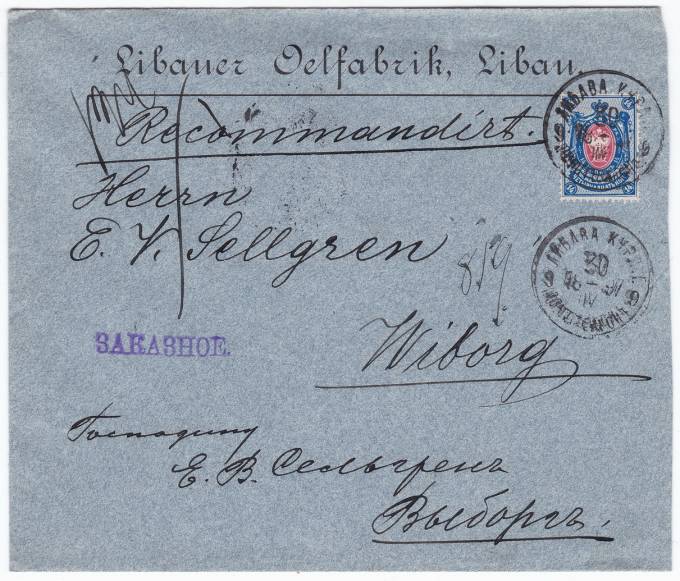 Libauer Oelfabrik, Libau.
Recommandirt.
Herrn
E. V. Sellgren
859
Wiborg
ЗАКАЗНОЕ.
Господину
Е. В. Сельгренъ
Выборгъ.
ЛИБАВА КУРЛ.
30
ЛИБАВА КУРЛ.
30
14
14